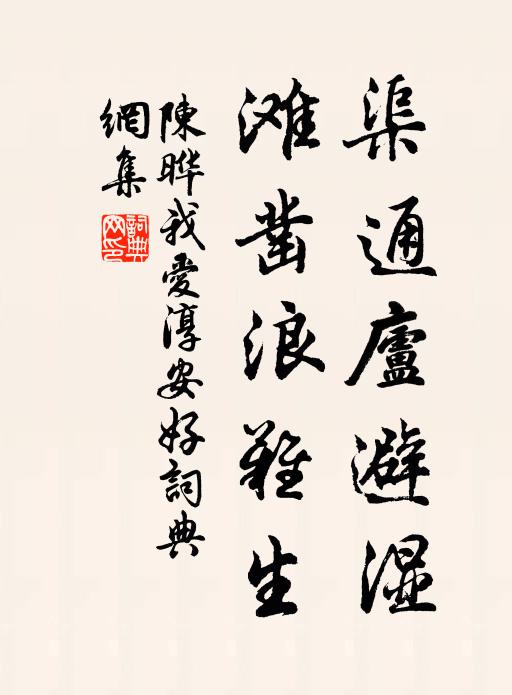 渠通廬避湿
滩凿浪難生
陳晔我愛淳安好詞典
網集
詞典網印